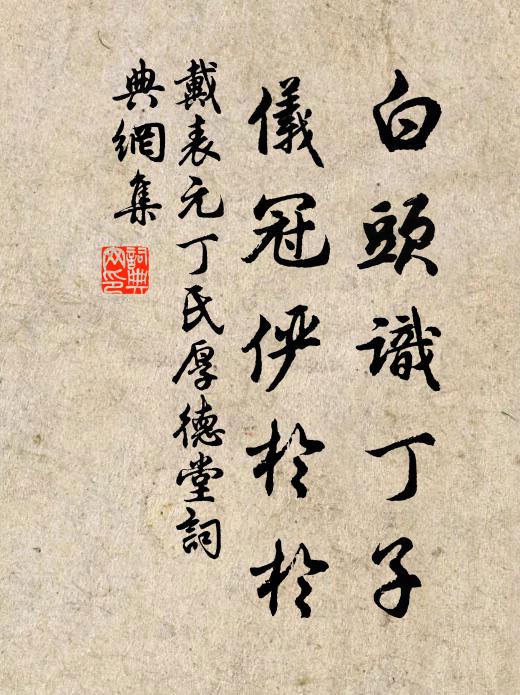 白頭識丁子
儀冠俨於於
戴表元丁氏厚德堂詞
典網集
詞典
网印